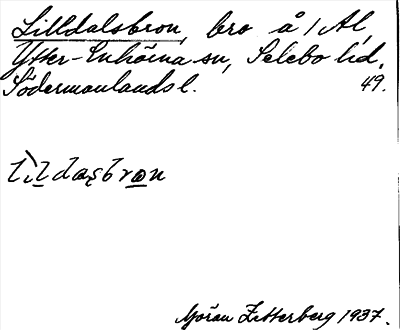 Lilldalsbron, bro å / Al,
Ytter-Enhörna sn, Selebo hd.
Södermanlands l. 49.
lìldasbron
Göran Zetterberg 1937.